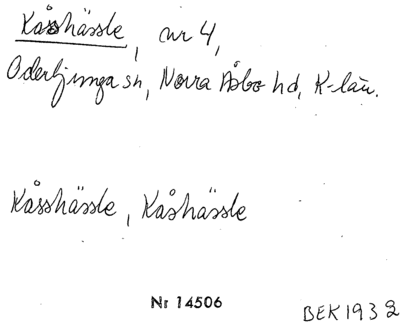 Kåshässle, nr 4,
Oderljunga sn, Norra Åsbo hd, K-län.
Kåsshässle, Kåshässle
Nr 14506
BEK 1932